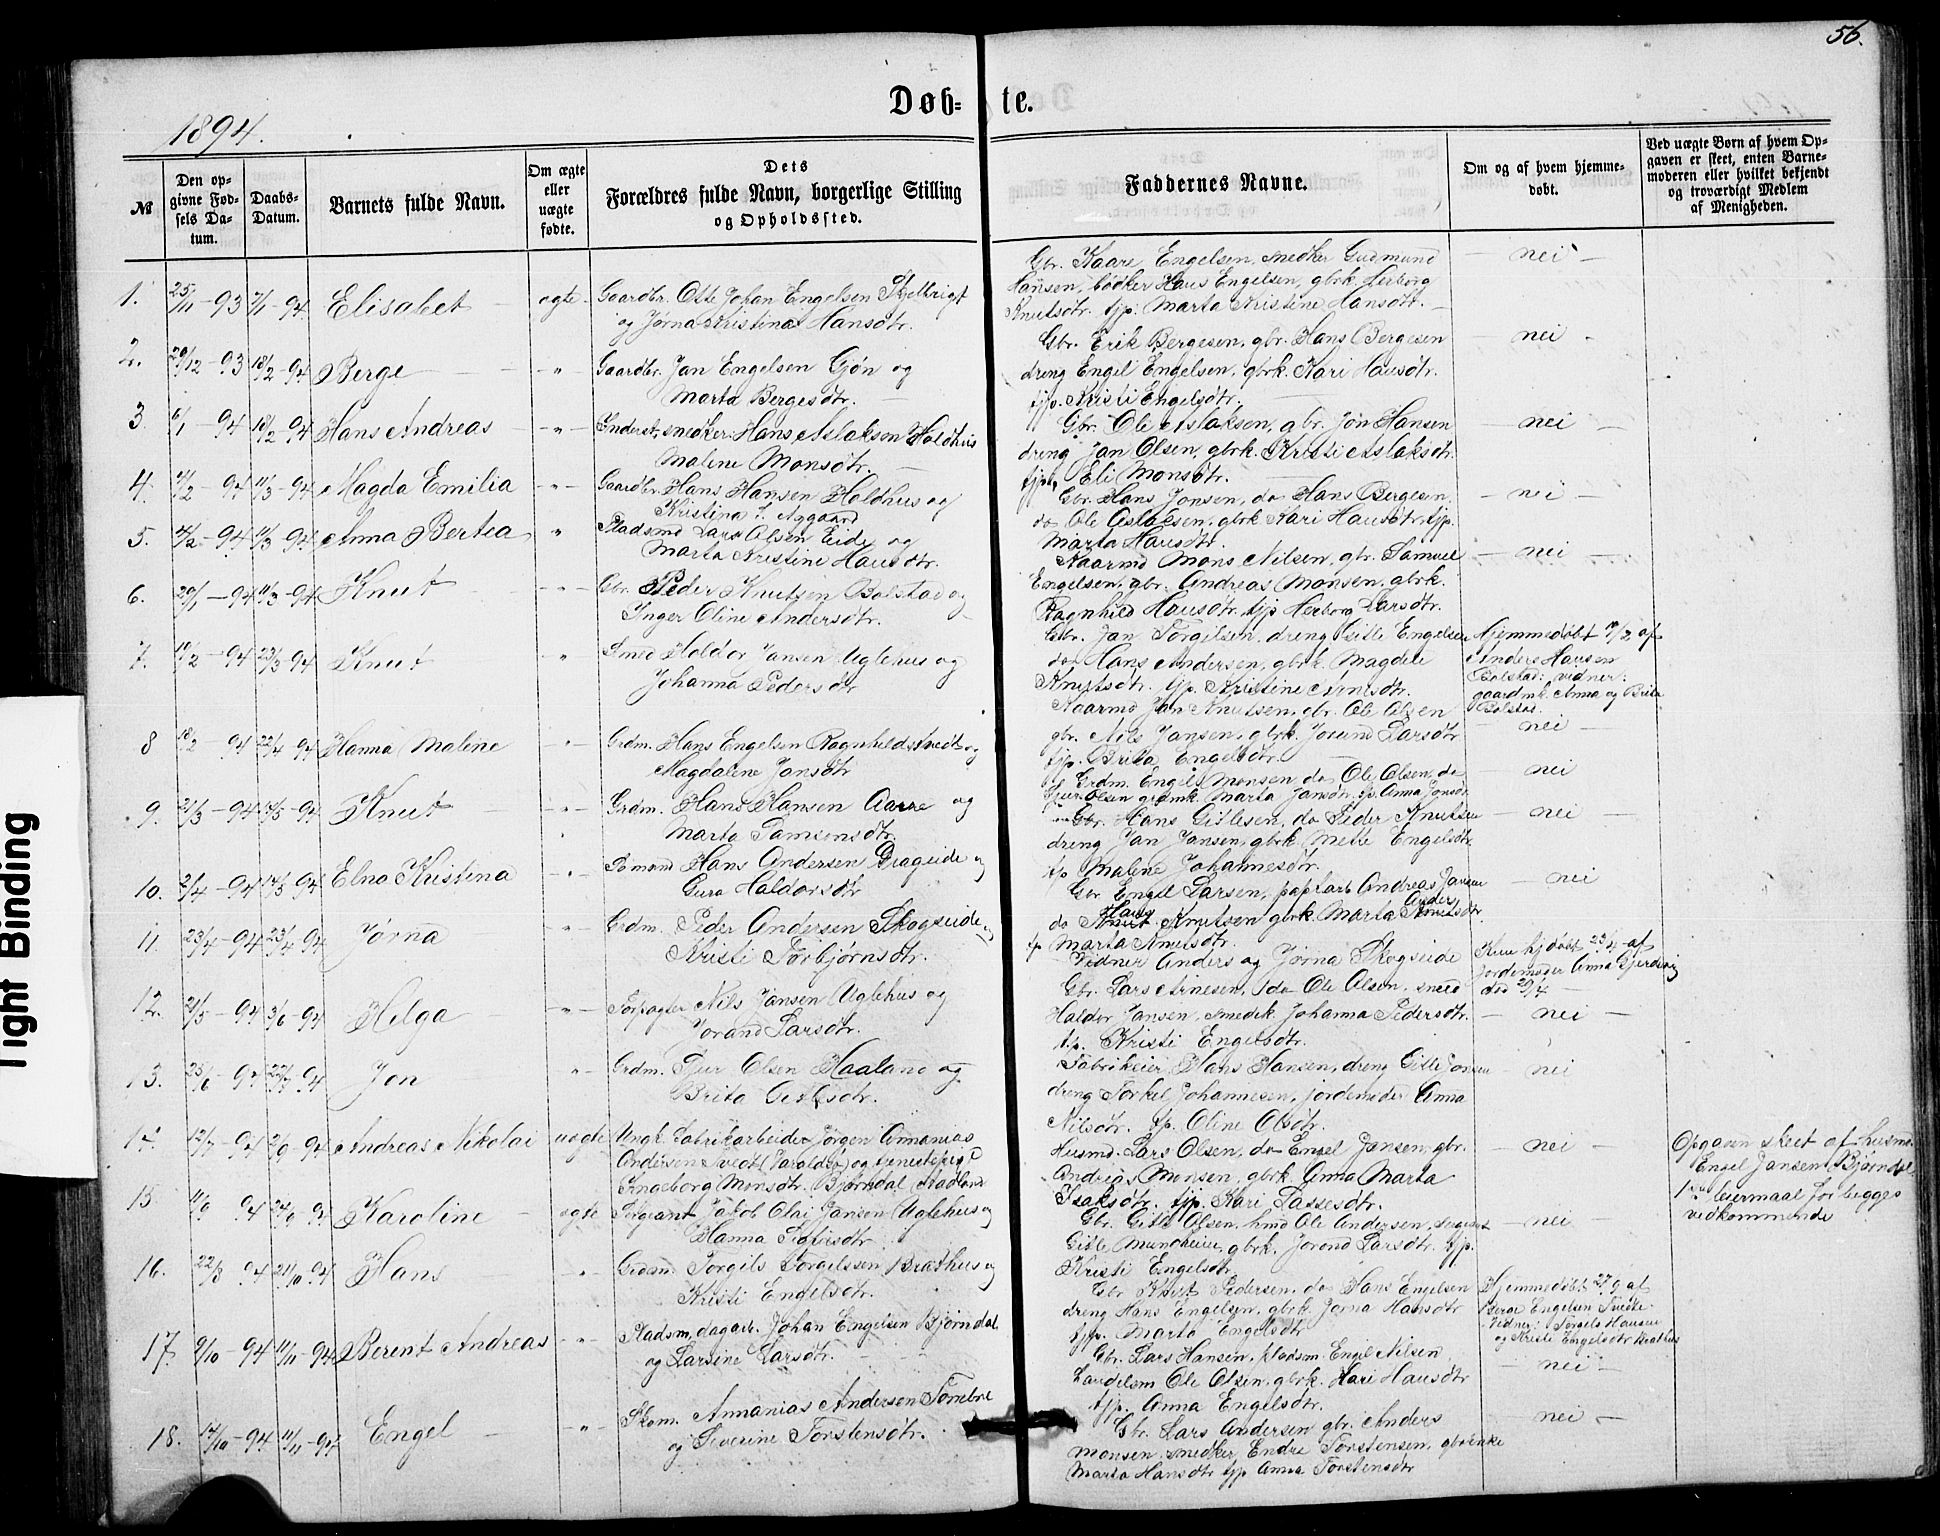 56.
Døb-te.
1894.
№
Den opgivne Fødsels Datum.
Daabs-Datum.
Barnets fulde Navn.
Om ægte eller uægte fødte.
Dets Forældres fulde Navn, borgerlige Stilling og Opholdssted.
Faddernes Navne.
Om og af hvem hjemmedøbt.
Ved uægte Børn af hvem Opgaven er skeet, enten Barnemoderen eller hvilket bekjendt og troværdigt Medlem af Menigheden.
1. 25/11-93 7/1-94 Elisabet ægte Gaardbr. Otte Johan Engelsen Skjelbrigt
og Jørna Kristina Hansdtr.
Gbr. Kaare Engelsen, snedker Gudmund
Hansen, bødker Hans Engelsen, gbrk. Herborg
Knutsdtr. tjp. Marta Kristine Hansdtr.
nei
2. 29/12-93 18/2-94 Berge -"- Gaardbr. Jan Engelsen Gjøn og
Marta Bergesdtr.
Gbr. Erik Bergesen, gbr. Hans Bergesen
dreng Engel Engelsen, gbrk. Kari Hansdtr.
tjp. Kristi Engelsdtr.
nei
3. 6/1-94 18/2-94 Hans Andreas -"- Inderst, snedker Hans Aslaksen Holdhus
Malene Monsdtr.
Gbr. Ole Aslaksen, gbr. Jon Hansen
dreng Jan Olsen, gbrk. Kristi Aslaksdtr.
tjp. Eli Monsdtr.
nei
4. 11/2-94 11/3-94 Magda Emilia -"- Gaardbr. Hans Hansen Holdhus og
Kristina Aagaard
Gbr. Hans Jonsen, do Hans Bergesen,
do Ole Aslaksen, gbrk Kari Hansdtr, tjp.
Marta Hansdtr.
nei
5. 4/2-94 11/3-94 Anna Bertea " Pladsmd Lars Olsen Eide og
Marta Kristine Hansdtr.
Kaarmd Mons Nilsen, gbr. Samuel
Engelsen, gbr. Andreas Monsen, gbrk.
Ragnhild Hansdtr. tjp Herborg Larsdtr.
nei
6. 20/1-94 11/3-94 Knut -"- Gbr. Peder Knutsen Bolstad og
Inger Oline Andersdtr.
7. 17/2-94 23/3-94 Knut " Smed Haldor Jansen Uglehus og
Johanna Pedersdtr
Gbr. Jan Torgilsen, dreng Gitle Engelsen
do Hans Andersen, gbrk. Magdele
Knutsdtr. tjp. Kristine Arnesdtr.
Hjemmedøbt 19/2 af
Anders Hansen
Bolstad: vidner:
gaardmk. Anna og Brita
Bolstad.
8 18/2 94 22/4-94 Hanna Malene -"- Grdm. Hans Engelsen Ragnhildstvedt og
Magdalene Jonsdtr
Kaarmd Jan Knutsen, gbr. Ole Olsen
gbr. Nils Jansen, gbrk. Jorund Larsdtr
tjp. Brita Engelsdtr.
nei
9. 21/3-94 14/5-94 Knut -"- Grdm. Hans Hansen Aarre og
Marta Samsonsdtr.
Grdm. Engels Monsen, do Ole Olsen, do
Sjur Olsen grdmk. Marta Jansdtr. tp. Anna Jonsdtr
nei
10. 2/4-94 14/5-94 Elna Kristina -"- Sømand Hans Andersen Drageide og
Guro Haldorsdtr
Gbr. Hans Gitlesen, do Peder Knutsen
dreng Jan Jansen, gbrk. Mette Engelsdtr
tp Malene Johannesdtr.
nei
Gbr Engel Larsen, paplarb Andreas Jansen
do Hans Knutsen gbrk. Marta Andersdtr.
tp Marta Knutsdtr.
nei
11. 23/4-94 23/4 94 Jørna -"- Grdm. Peder Andersen Skogseide og
Kristi Torbjørnsdtr.
Vidner Anders og Jørna Skogseide
Kun hjdøbt 23/4 af
jordemoder Anna Gjerdevig
død 29/4
12. 21/5-94 3/6 94 Helga -"- Torpagter Nils Jansen Uglehus og
Jorand Larsdtr.
Gbr. Lars Arnesen, do Ole Olsen, smed
Haldor Jansen, smedk Johanna Pedersdtr.
tp. Kristi Engelsdtr.
nei
13. 25/6-94 22/7 94 Jon "- Grdm. Sjur Olsen Haaland og
Brita Osdtr.
Fabrikeier Hans Hansen, dreng Gitle Jonsen
dreng Torkel Johannesen, jordemoder Anna
Nilsdtr. tp. Oline Olsdtr.
nei
14. 12/7-94 2/9-94 Andreas Nikolai uægte Ungk. Fabrikarbeider Jørgen Annanias
Andersen Tvedt og tjenestepige
Ingeborg Monsdtr. Bjørndal
Husmd. Lars Olsen, do Engel Jansen, gbr.
Andreas Monsen, gbrk. Anna Marta
Isaksdtr. tjp. Kari Lassesdtr.
nei
Opgaven skeet af husmd
Engel Jansen Bjørndal
1ste leiermaal for begges
vedkommende
15 11/9 94 24/9 94 Karoline ægte Sergeant Jakob Olai Jansen Uglehus og
Hanna Sjursdtr
Gbr. Gitle Olsen, hmd Ole Andersen, sergeant
Gitle Mundheim, gbrk. Jorond Larsdtr. tjp.
Kristi Engelsdtr.
nei
16. 22/8 94 21/10 94 Hans -"- Grdmd. Torgils Torgilssen Brathus og
Kristi Engelsdtr.
Gbr. Knut Pedersen, do Hans Engelsen
dreng Hans Engelsen, gbrk. Jorna Hansdtr
tjp. Marta Engelsdtr
Hjemmedøbt 27/9 af
Berge Engelsen
Vidner: Torgils Hansen
og Kristi Engelsdtr Brathus
17. 9/10-94 11/11-94 Berent Andreas -"- Pladsm, dagarb. Johan Engelsen Bjørndal
og Larsine Larsdtr.
Gbr. Lars Hansen, pladsm. Engel Nilsen
Ole Olsen, gbrk. Kari Hansdtr
tjp. Anna Engelsdtr.
nei
18. 17/10-94 11/11-94 Engel -"- Skom. Annanias Andersen Tombre
og Severine Torstensdtr.
Gbr. Lars Andersen gbr. Anders
Monsen, snedker Endre Torstensen, gbrenke
Marta Hansdtr tjp Anna Torstensdtr
nei
Tight Binding